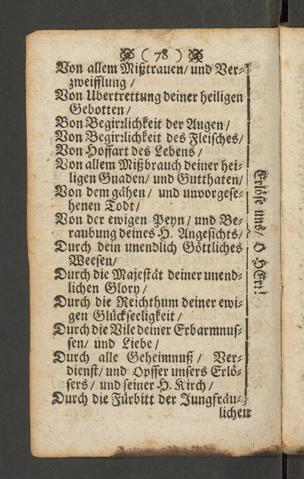 ( 78 )
Von allem Mißtrauen/ und Ver-
zweifflung /
Von Ubertrettung deiner heiligen
Gebotten /
Von Begirlichkeit der Augen /
Von Begirlichkeit des Fleisches/
Von Hoffart des Lebens /
Von allem Mißbrauch deiner hei-
ligen Gnaden/ und Gutthaten/
Von dem gähen/ und unvorgese-
henen Todt/
Von der ewigen Peyn / und Be-
raubung deines H. Angesichts/
Durch dein unendlich Göttliches
Weesen/
Durch die Majestät deiner unend-
lichen Glory/
Durch die Reichthum deiner ewi-
gen Glückseeligkeit /
Durch die Vile deiner Erbarmnus-
sen/ und Liebe/
Durch alle Geheimnuß / Ver-
dienst/ und Opffer unsers Erlö-
sers/ und seiner H. Kirch/
Durch die Fürbitt der Jungfräu-
lichen
Erlöse uns/ O HErr!